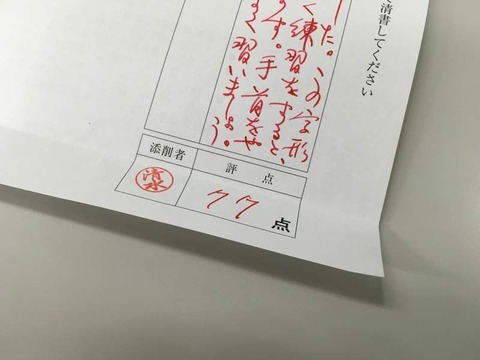 清書してください
した。この字形
く練習をすると、
ます。手首をや
く習いましょ
う。
評点
77点
添削者
清水